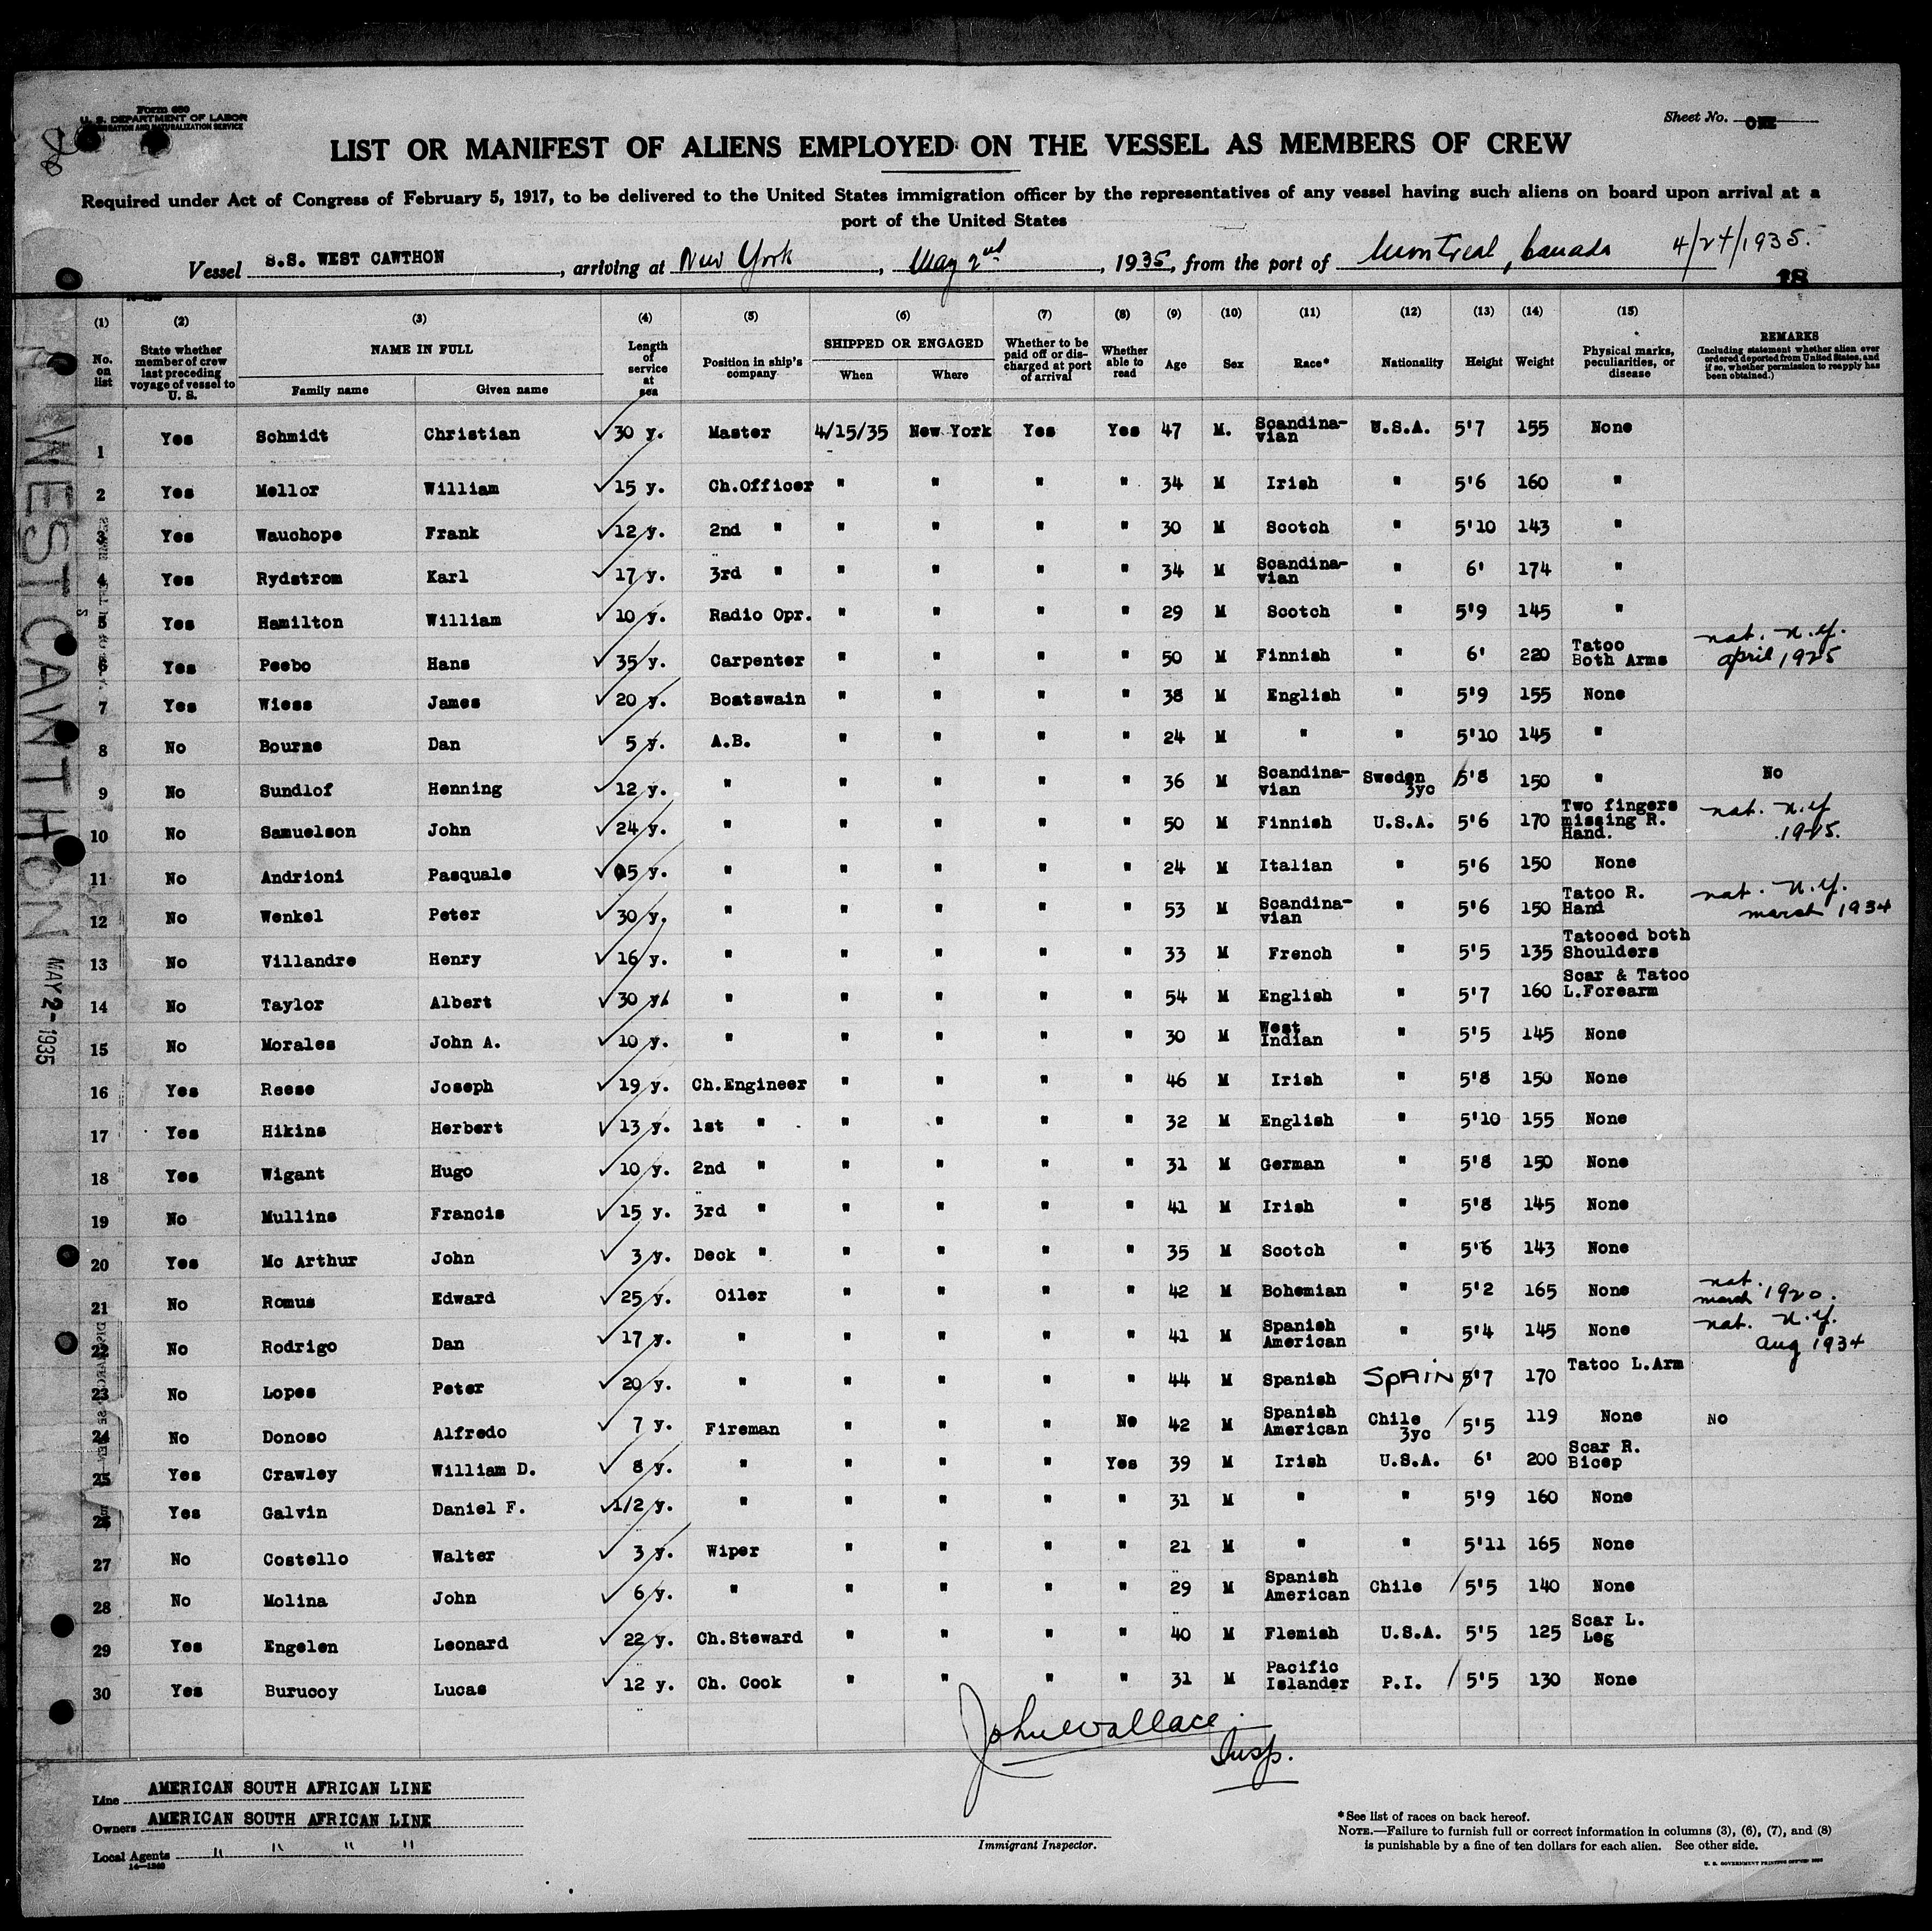 Form 680
U. S. DEPARTMENT OF LABOR
IMMIGRATION AND NATURALIZATION SERVICE
Sheet No. ONE
LIST OR MANIFEST OF ALIENS EMPLOYED ON THE VESSEL AS MEMBERS OF CREW
Required under Act of Congress of February 5, 1917, to be delivered to the United States immigration officer by the representatives of any vessel having such aliens on board upon arrival at a
port of the United States
Vessel S.S. WEST CAWTHON, arriving at New York, May 2nd, 1935, from the port of Montreal, Canada 4/24/1935.
18
(1) (2) (3) (4) (5) (6) (7) (8) (9) (10) (11) (12) (13) (14) (15)
No. on list
State whether member of crew last preceding voyage of vessel to U. S.
NAME IN FULL
Family name Given name
Length of service at sea
Position in ship's company
SHIPPED OR ENGAGED
When Where
Whether to be paid off or discharged at port of arrival
Whether able to read
Age Sex Race* Nationality Height Weight
Physical marks, peculiarities, or disease
REMARKS
(Including statement whether alien ever ordered deported from United States, and if so, whether permission to reapply has been obtained.)
1 Yes Schmidt Christian √ 30 y. Master 4/15/35 New York Yes Yes 47 M. Scandina-vian U.S.A. 5'7 155 None
2 Yes Mellor William √ 15 y. Ch.Officer " " " " 34 M Irish " 5'6 160 "
3 Yes Wauchope Frank √ 12 y. 2nd " " " " " 30 M Scotch " 5'10 143 "
4 Yes Rydstrom Karl √ 17 y. 3rd " " " " " 34 M Scandina-vian " 6' 174 "
5 Yes Hamilton William √ 10 y. Radio Opr. " " " " 29 M Scotch " 5'9 145 "
6 Yes Peebo Hans √ 35 y. Carpenter " " " " 50 M Finnish " 6' 220 Tatoo Both Arms nat. N.Y. April 1925
7 Yes Wiess James √ 20 y. Boatswain " " " " 38 M English " 5'9 155 None
8 No Bourne Dan √ 5 y. A.B. " " " " 24 M " " 5'10 145 "
9 No Sundlof Henning √ 12 y. " " " " " 36 M Scandina-vian Sweden 3yc 5'8 150 " No
10 No Samuelson John √ 24 y. " " " " " 50 M Finnish U.S.A. 5'6 170 Two fingers missing R. Hand. nat. N.Y. 1925.
11 No Andrioni Pasquale √ 5 y. " " " " " 24 M Italian " 5'6 150 None
12 No Wenkel Peter √ 30 y. " " " " " 53 M Scandina-vian " 5'6 150 Tatoo R. Hand nat. N.Y. March 1934
13 No Villandre Henry √ 16 y. " " " " " 33 M French " 5'5 135 Tatooed both Shoulders
14 No Taylor Albert √ 30 y. " " " " " 54 M English " 5'7 160 Scar & Tatoo L.Forearm
15 No Morales John A. √ 10 y. " " " " " 30 M West Indian " 5'5 145 None
16 Yes Reese Joseph √ 19 y. Ch.Engineer " " " " 46 M Irish " 5'8 150 None
17 Yes Hikins Herbert √ 13 y. 1st " " " " " 32 M English " 5'10 155 None
18 Yes Wigant Hugo √ 10 y. 2nd " " " " " 31 M German " 5'8 150 None
19 No Mullins Francis √ 15 y. 3rd " " " " " 41 M Irish " 5'8 145 None
20 Yes Mc Arthur John √ 3 y. Deck " " " " " 35 M Scotch " 5'6 143 None
21 No Romus Edward √ 25 y. Oiler " " " " 42 M Bohemian " 5'2 165 None nat. March 1920.
22 No Rodrigo Dan √ 17 y. " " " " " 41 M Spanish American " 5'4 145 None nat. N.Y. Aug 1934
23 No Lopes Peter √ 20 y. " " " " " 44 M Spanish SPAIN 5'7 170 Tatoo L.Arm
24 No Donoso Alfredo √ 7 y. Fireman " " " No 42 M Spanish American Chile 3yc 5'5 119 None No
25 Yes Crawley William D. √ 8 y. " " " " Yes 39 M Irish U.S.A. 6' 200 Scar R. Bicep
26 Yes Galvin Daniel F. √ 1/2 y. " " " " " 31 M " " 5'9 160 None
27 No Costello Walter √ 3 y. Wiper " " " " 21 M " " 5'11 165 None
28 No Molina John √ 6 y. " " " " " 29 M Spanish American Chile 5'5 140 None
29 Yes Engelen Leonard √ 22 y. Ch.Steward " " " " 40 M Flemish U.S.A. 5'5 125 Scar L. Leg
30 Yes Burucoy Lucas √ 12 y. Ch. Cook " " " " 31 M Pacific Islander P.I. 5'5 130 None
John Wallace
Insp.
Line AMERICAN SOUTH AFRICAN LINE
Owners AMERICAN SOUTH AFRICAN LINE
Local Agents " " " "
14—1240
Immigrant Inspector.
*See list of races on back hereof.
NOTE.—Failure to furnish full or correct information in columns (3), (6), (7), and (8)
is punishable by a fine of ten dollars for each alien. See other side.
U. S. GOVERNMENT PRINTING OFFICE
WEST CAWTHON
MAY 2-1935